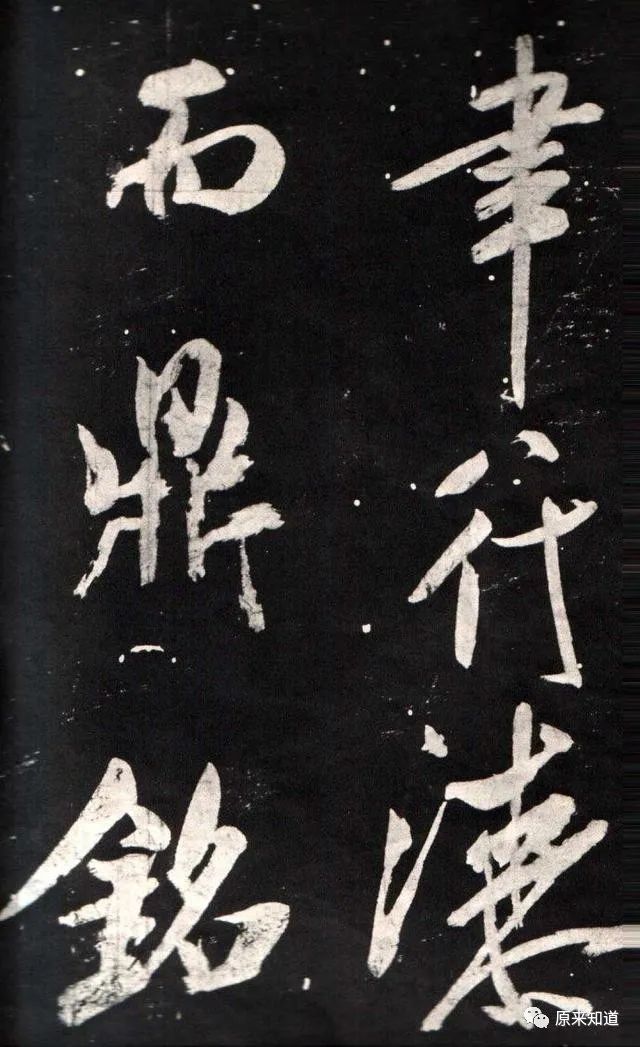 聿行漆
而鼎銘
原来知道